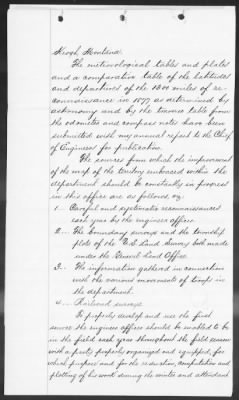 Keogh Montana.
The meteorological tables and plates
and a comparative table of the latitudes
and departures of the 1300 miles of re-
connaissance in 1877 as determined by
astronomy and by the traverse table from
the odometer and compass notes have been
submitted with my annual report to the Chief
of Engineers for publication.
The sources from which the improvement
of the map of the territory embraced within the
department should be constantly in progress
in this office are as follows, viz:
1. Careful and systematic reconnaissances
each year by the engineer officer.
2. The boundary surveys and the township
plots of the U.S. Land Surveys both made
under the General Land Office.
3. The information gathered in connection
with the various movements of troops in
the department.
4. Railroad surveys.
To properly develop and use the first
source the engineer officer should be enabled to be
in the field each year throughout the field season
with a party properly organized and equipped, for
which purpose and for the reduction, computation and
plotting of his work during the winter and attendant